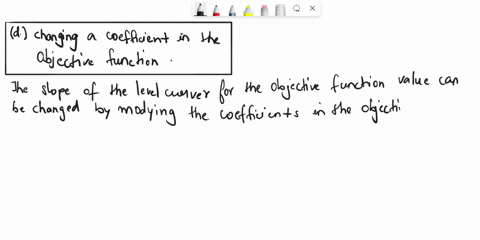 (d.) changing a coefficient in the
objective function.
The slope of the level curver for the objective function value can
be changed by modying the coefficients in the objecti